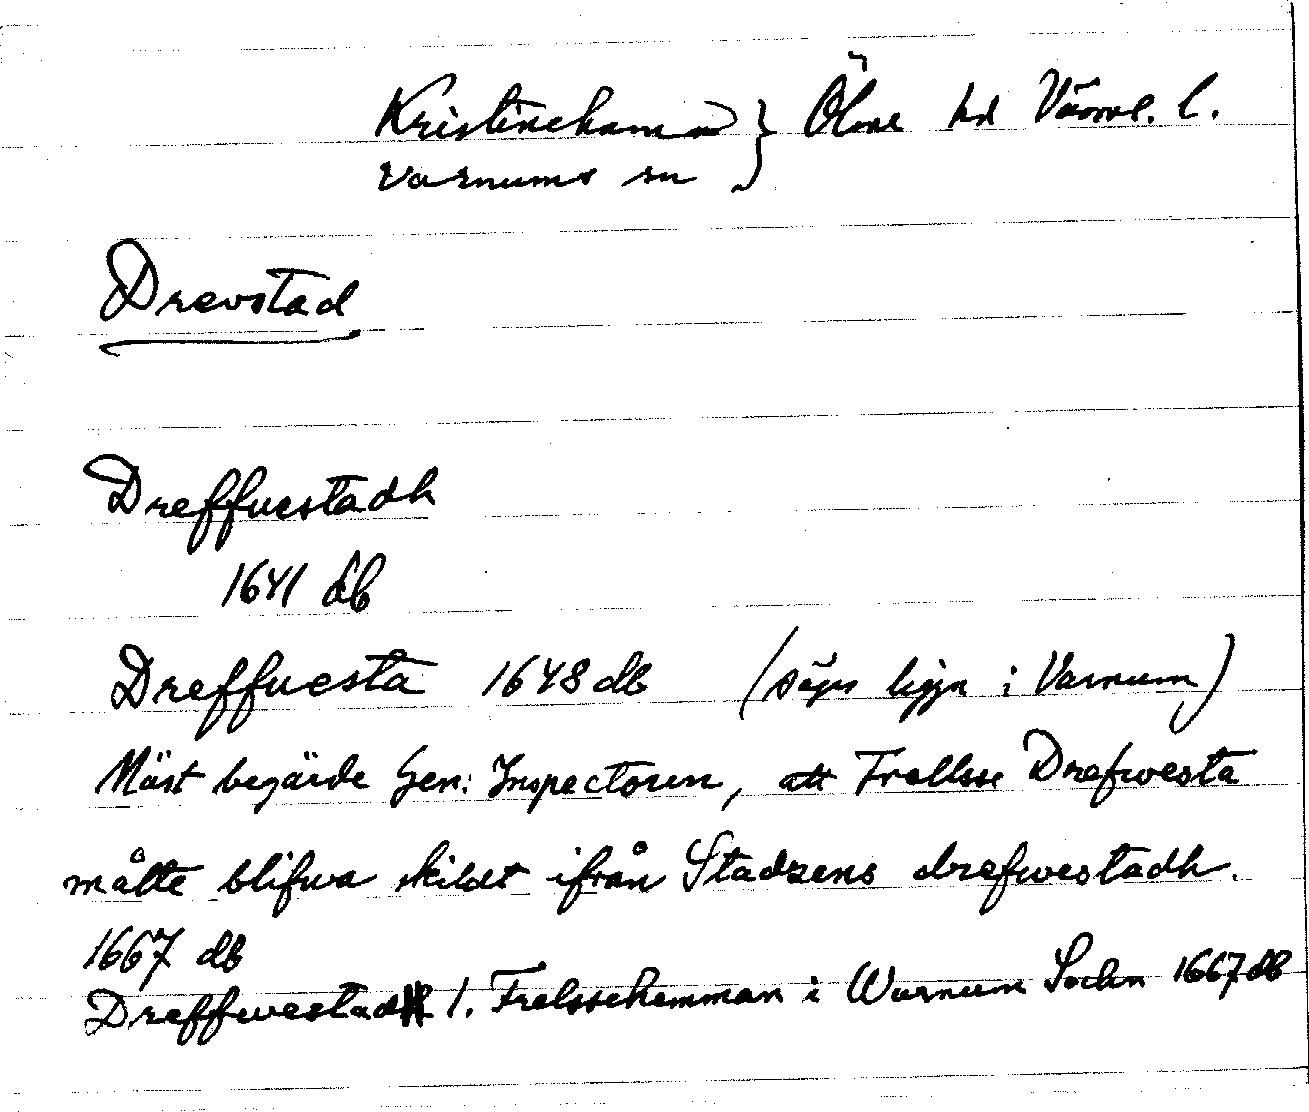 Kristinehamn } Ölme hd Värml. l.
Varnums sn
Drevstad
Dreffuestadh
1641 db
Dreffuesta 1648 db (säges ligga i Varnum)
Näst begärde Gen: Inspectoren, att Frellsse Drefwesta
måtte blifwa skildt ifrån Stadzens drefwestadh.
1667 db
Dreffwestadh 1. Frelssehemman i Warnum Sochn 1667 db